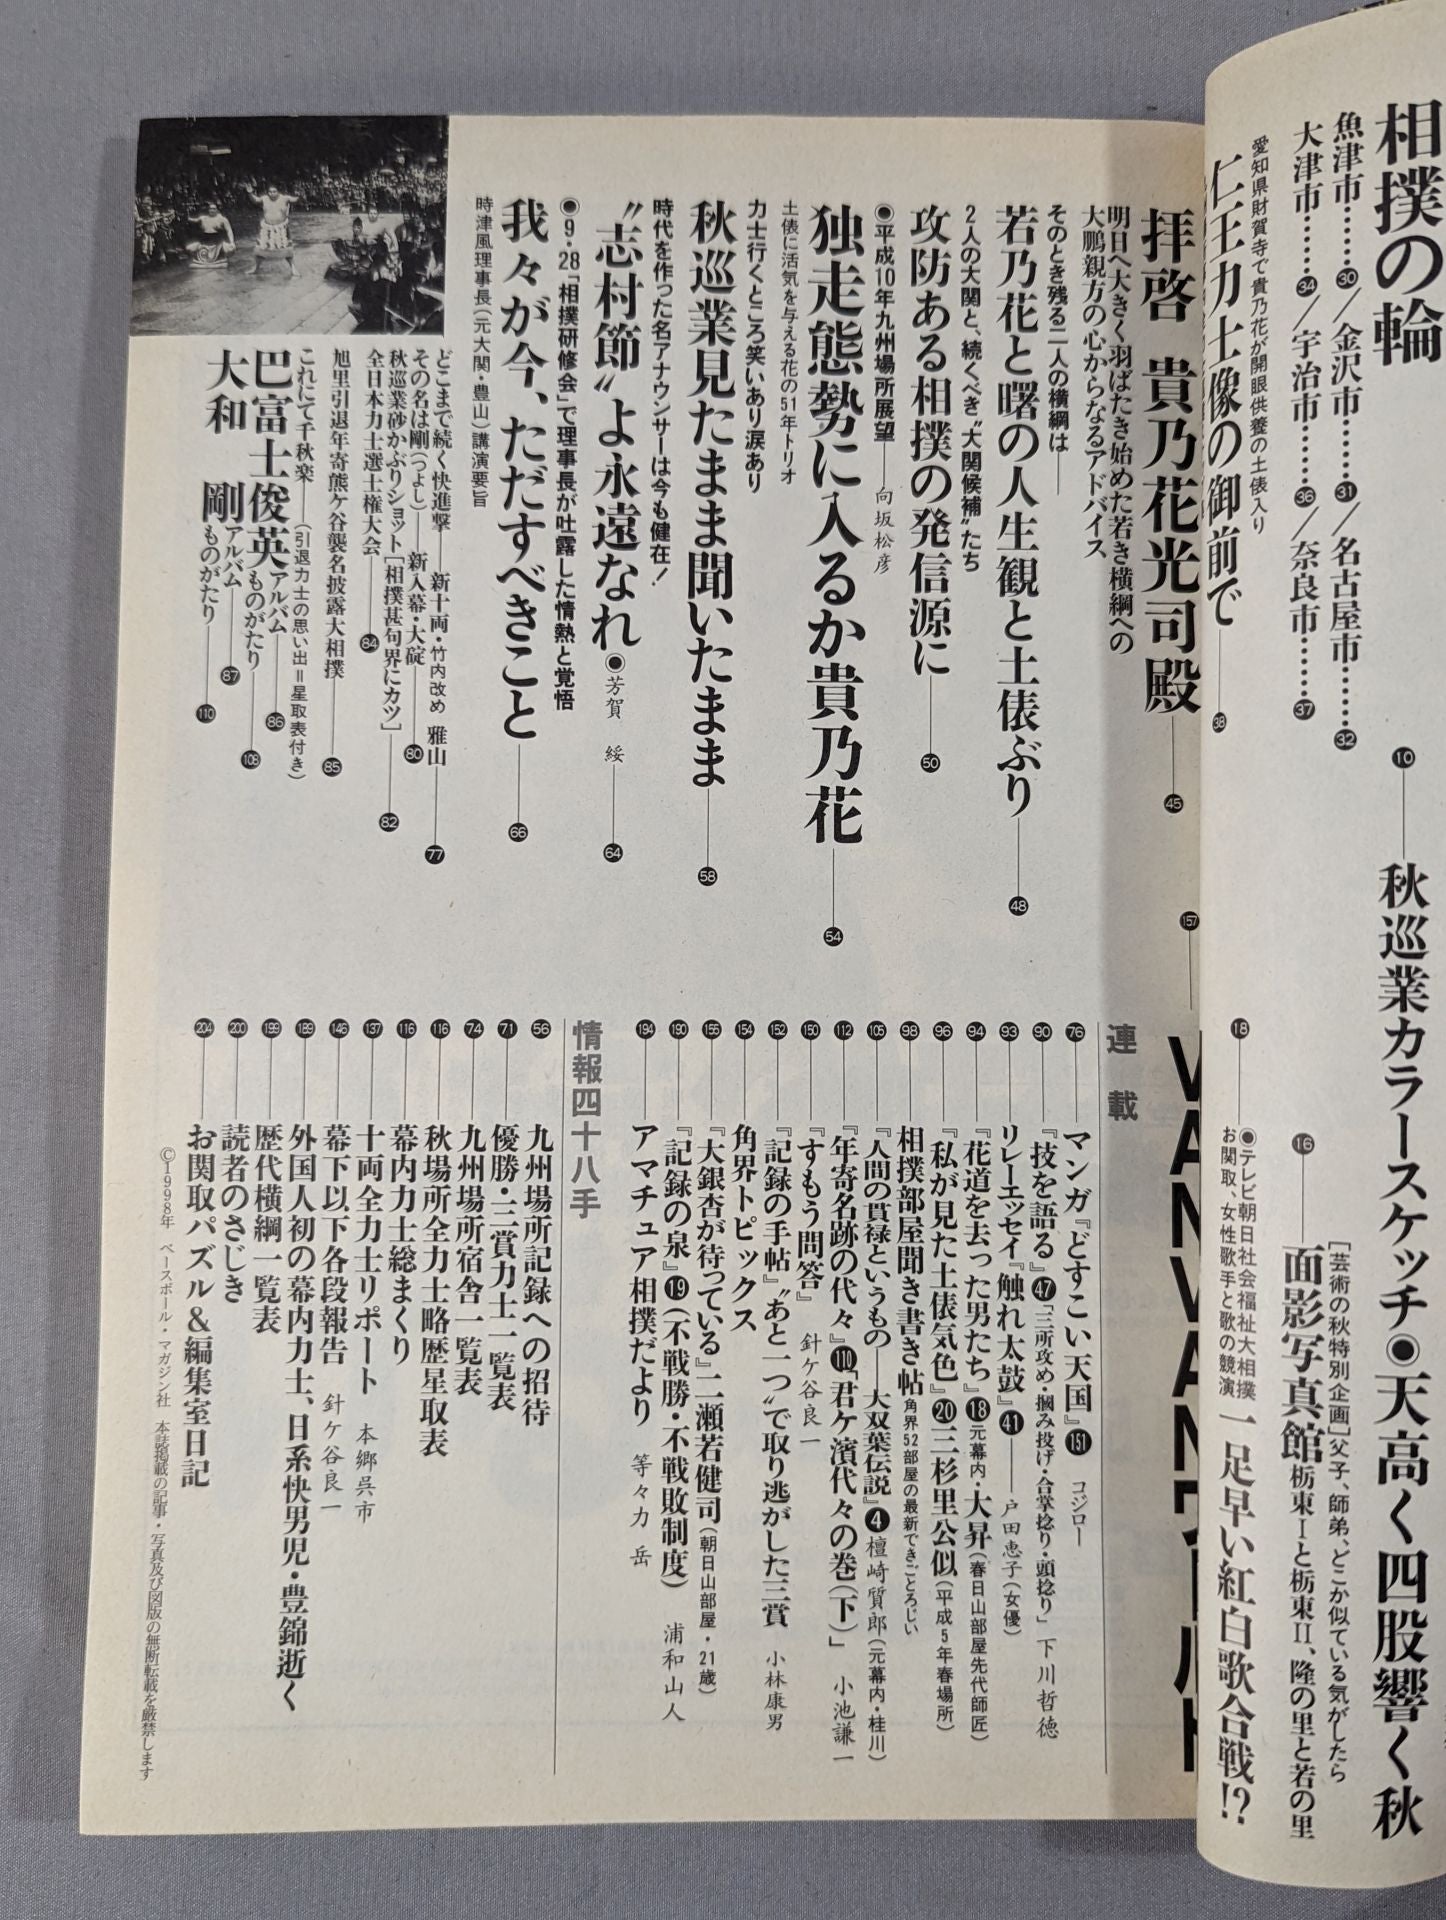 相撲の輪
魚津市………30／金沢市………31／名古屋市………32
大津市………34／宇治市………36／奈良市………37
愛知県財賀寺で貴乃花が開眼供養の土俵入り
仁王力士像の御前で 38
10 秋巡業カラースケッチ◉天高く四股響く秋
16 [芸術の秋特別企画]父子、師弟、どこか似ている気がしたら
面影写真館 栃東Ⅰと栃東Ⅱ、隆の里と若の里
18 ◉テレビ朝日社会福祉大相撲
お関取、女性歌手と歌の競演
一足早い紅白歌合戦!?
拝啓 貴乃花光司殿 45
明日へ大きく羽ばたき始めた若き横綱への
大鵬親方の心からなるアドバイス
そのとき残る二人の横綱は
若乃花と曙の人生観と土俵ぶり 48
2人の大関と、続くべき“大関候補”たち
攻防ある相撲の発信源に 50
◉平成10年九州場所展望 向坂松彦
独走態勢に入るか貴乃花 54
土俵に活気を与える花の51年トリオ
力士行くところ笑いあり涙あり
秋巡業見たまま聞いたまま 58
時代を作った名アナウンサーは今も健在!
“志村節”よ永遠なれ ◉芳賀 綏 64
◉9・28「相撲研修会」で理事長が吐露した情熱と覚悟
我々が今、ただすべきこと 66
時津風理事長(元大関・豊山)講演要旨
どこまで続く快進撃 新十両・竹内改め 雅山 77
その名は剛(つよし) 新入幕・大碇 80
秋巡業砂かぶりショット[相撲甚句界にカツ] 82
全日本力士選士権大会 84
旭里引退年寄熊ケ谷襲名披露大相撲 85
これにて千秋楽 (引退力士の思い出＝星取表付き)
巴富士俊英 アルバム 86 ものがたり 108
大和 剛 アルバム 87 ものがたり 110
157
連載
76 マンガ『どすこい天国』151 コジロー
90 『技を語る』47「三所攻め・掴み投げ・合掌捻り・頭捻り」 下川哲徳
93 リレーエッセイ『触れ太鼓』41 戸田恵子(女優)
94 『花道を去った男たち』18 元幕内・大昇(春日山部屋先代師匠)
96 『私が見た土俵気色』20 三杉里公似(平成5年春場所)
98 相撲部屋聞き書き帖 角界52部屋の最新できごとろじい
105 『人間の貫禄というもの―大双葉伝説』4 檀崎質郎(元幕内・桂川)
112 『年寄名跡の代々』110「君ケ濱代々の巻(下)」 小池謙一
150 『すもう問答』 針ケ谷良一
152 『記録の手帖』“あと一つ”で取り逃がした三賞 小林康男
154 角界トピックス
155 『大銀杏が待っている』二瀬若健司(朝日山部屋・21歳)
190 『記録の泉』19(不戦勝・不戦敗制度) 浦和山人
194 アマチュア相撲だより 等々力 岳
情報四十八手
56 九州場所記録への招待
71 優勝・三賞力士一覧表
74 九州場所宿舎一覧表
116 秋場所全力士略歴星取表
116 幕内力士総まくり
137 十両全力士リポート 本郷呉市
146 幕下以下各段報告 針ケ谷良一
189 外国人初の幕内力士、日系快男児・豊錦逝く
199 歴代横綱一覧表
200 読者のさじき
204 お関取パズル＆編集室日記
©1998年 ベースボール・マガジン社 本誌掲載の記事・写真及び図版の無断転載を厳禁します